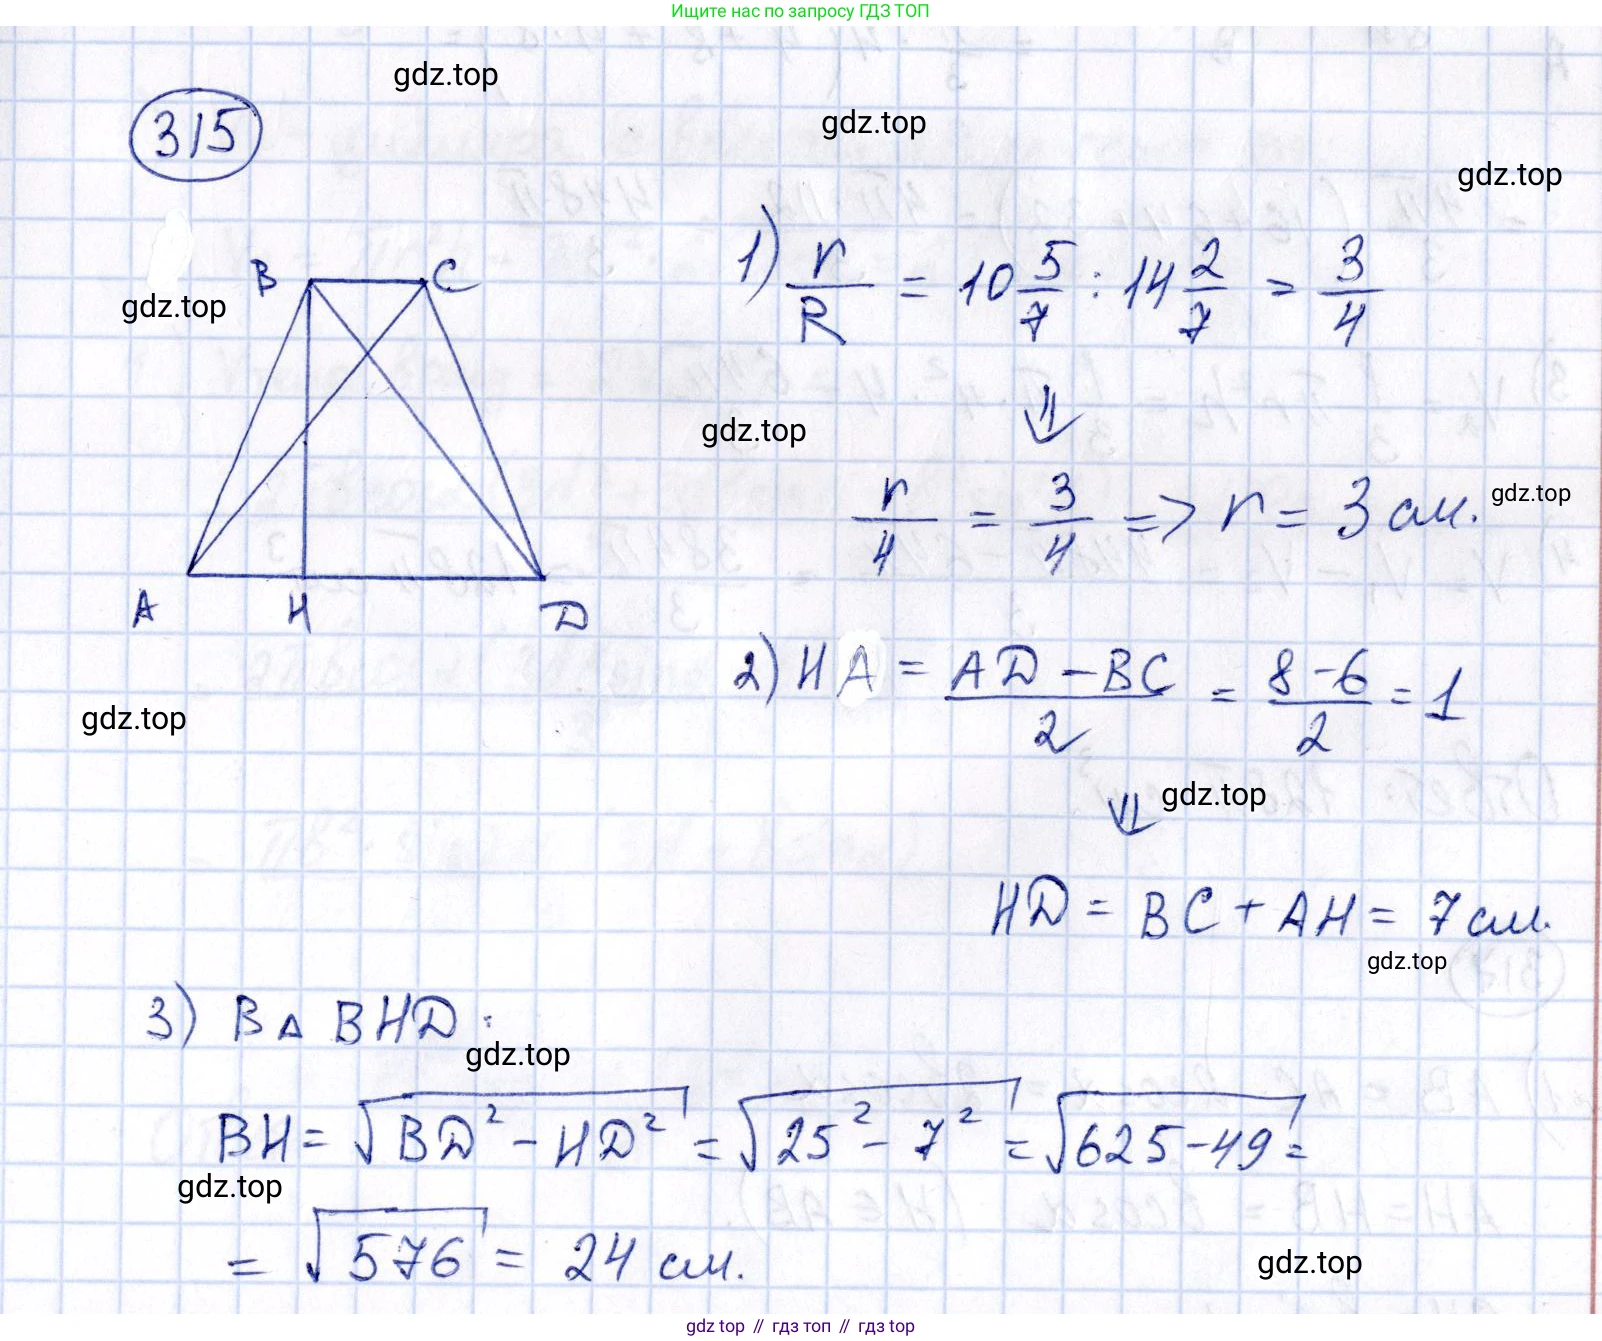 Ищите нас по запросу ГДЗ ТОП
gdz.top
gdz.top
315
gdz.top
1) r/R = 10 5/7 : 14 2/7 = 3/4
B C
gdz.top
⇓
gdz.top
r/4 = 3/4 => r = 3 см.
gdz.top
A H D
2) HA = (AD - BC)/2 = (8 - 6)/2 = 1
gdz.top
⇓
gdz.top
HD = BC + AH = 7 см.
gdz.top
3) В △ BHD:
gdz.top
BH = √(BD² - HD²) = √(25² - 7²) = √(625 - 49) =
gdz.top
= √576 = 24 см.
gdz.top
gdz top // гдз топ // гдз top